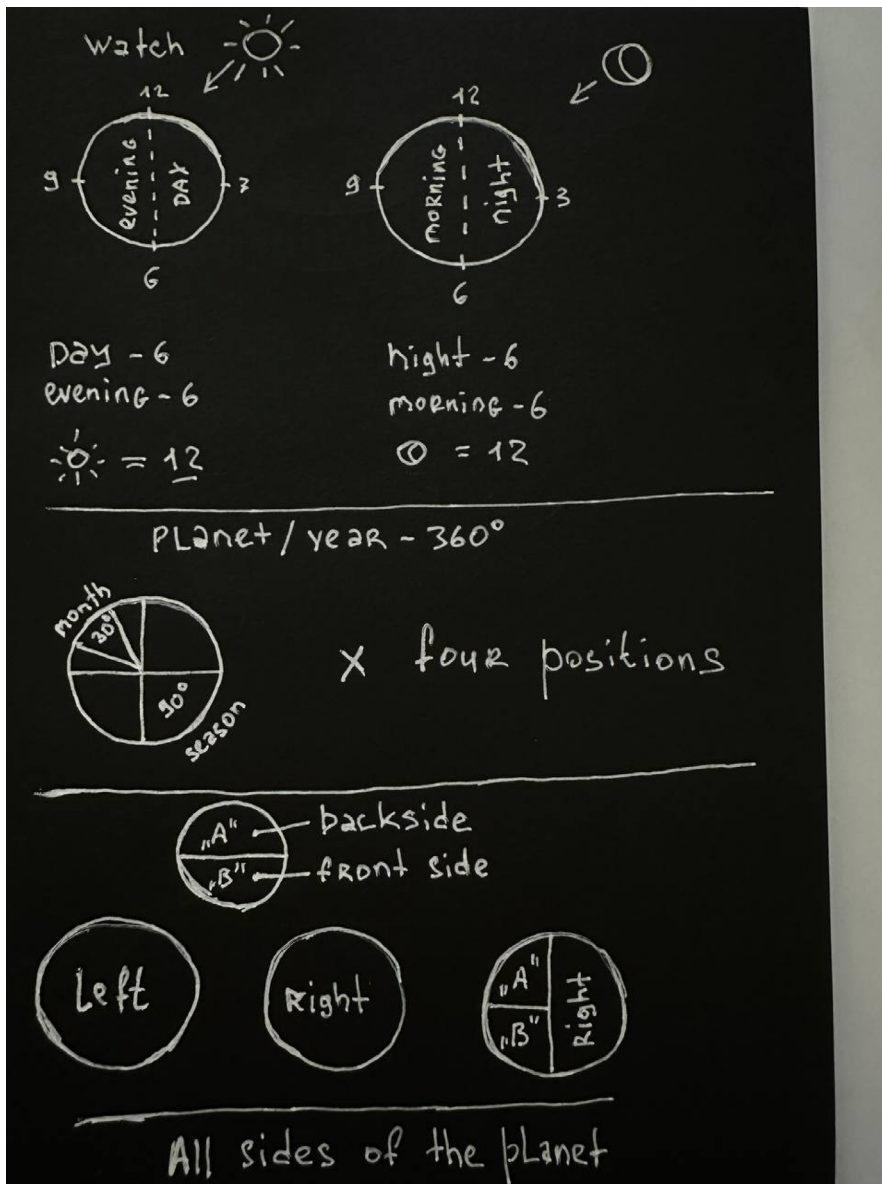 watch
12
12
evening
DAY
morning
night
9
3
9
3
6
6
Day - 6
night - 6
evening - 6
morning - 6
= 12
= 12
Planet / year - 360°
month
30°
90°
season
x four positions
„A" backside
„B" front side
Left
Right
„A"
„B"
Right
All sides of the planet